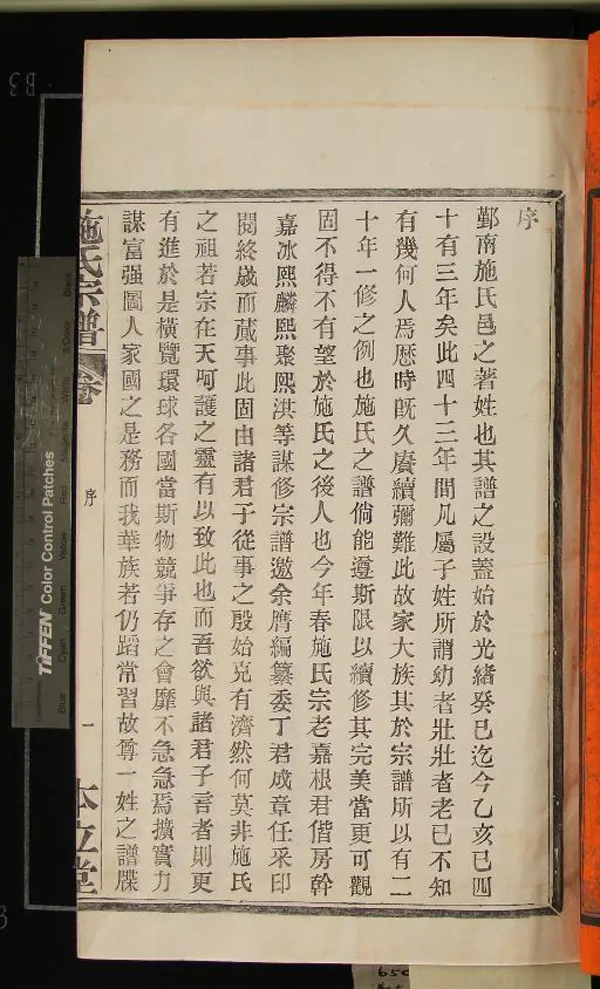 序
鄞南施氏邑之著姓也其譜之設蓋始於光緒癸巳迄今乙亥已四
十有三年矣此四十三年間凡屬子姓所謂幼者壯壯者老已不知
有幾何人焉歷時旣久賡續彌難此故家大族其於宗譜所以有二
十年一修之例也施氏之譜倘能遵斯限以續修其完美當更可觀
固不得不有望於施氏之後人也今年春施氏宗老嘉根君偕房幹
嘉冰熙麟熙聚熙淇等謀修宗譜邀余膺編纂委丁君成章任采印
閱終歲而蕆事此固由諸君子從事之殷始克有濟然何莫非施氏
之祖若宗在天呵護之靈有以致此也而吾欲與諸君子言者則更
有進於是橫覽環球各國當斯物競爭存之會靡不急急焉擴實力
謀富强圖人家國之是務而我華族若仍蹈常習故尊一姓之譜牒
施氏宗譜 卷 序 一 本立堂
TIFFEN Color Control Patches
Blue Cyan Green Yellow Red Magenta White 3/Color Black
B3
650